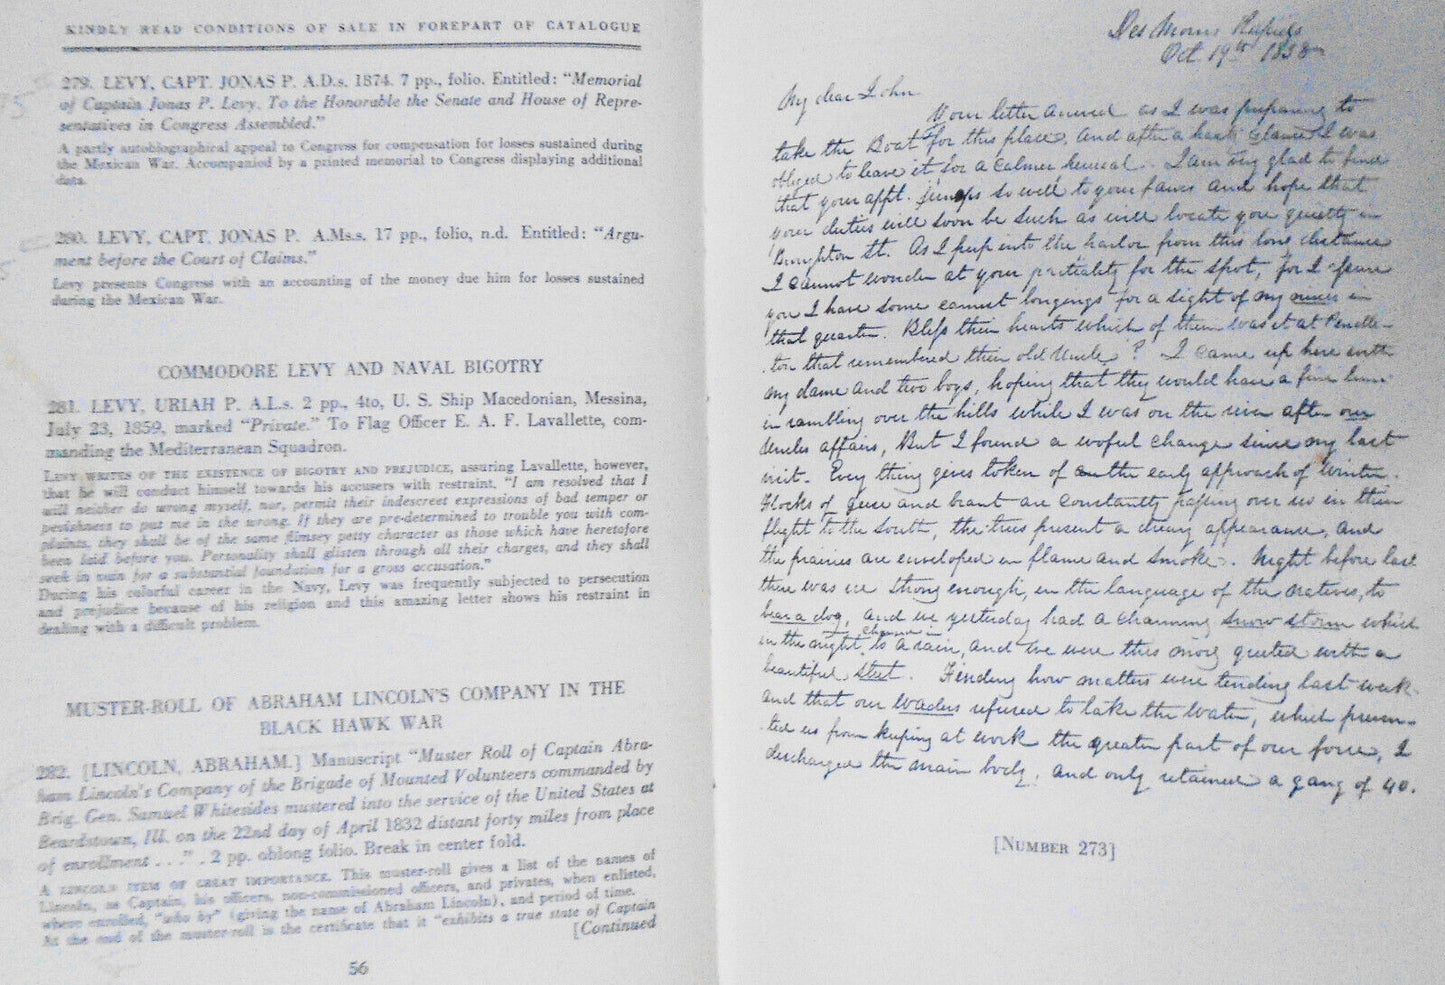 KINDLY READ CONDITIONS OF SALE IN FOREPART OF CATALOGUE
279. LEVY, CAPT. JONAS P. A.D.s. 1874. 7 pp., folio. Entitled: "Memorial
of Captain Jonas P. Levy. To the Honorable the Senate and House of Repre-
sentatives in Congress Assembled."
A partly autobiographical appeal to Congress for compensation for losses sustained during
the Mexican War. Accompanied by a printed memorial to Congress displaying additional
data.
280. LEVY, CAPT. JONAS P. A.Ms.s. 17 pp., folio, n.d. Entitled: "Argu-
ment before the Court of Claims."
Levy presents Congress with an accounting of the money due him for losses sustained
during the Mexican War.
COMMODORE LEVY AND NAVAL BIGOTRY
281. LEVY, URIAH P. A.L.s. 2 pp., 4to, U. S. Ship Macedonian, Messina,
July 23, 1859, marked "Private." To Flag Officer E. A. F. Lavallette, com-
manding the Mediterranean Squadron.
LEVY WRITES OF THE EXISTENCE OF BIGOTRY AND PREJUDICE, assuring Lavallette, however,
that he will conduct himself towards his accusers with restraint. "I am resolved that I
will neither do wrong myself, nor, permit their indescreet expressions of bad temper or
pevishness to put me in the wrong. If they are pre-determined to trouble you with com-
plaints, they shall be of the same flimsey petty character as those which have heretofore
been laid before you. Personality shall glisten through all their charges, and they shall
seek in vain for a substantial foundation for a gross accusation."
During his colorful career in the Navy, Levy was frequently subjected to persecution
and prejudice because of his religion and this amazing letter shows his restraint in
dealing with a difficult problem.
MUSTER-ROLL OF ABRAHAM LINCOLN'S COMPANY IN THE
BLACK HAWK WAR
282. [LINCOLN, ABRAHAM.] Manuscript "Muster Roll of Captain Abra-
ham Lincoln's Company of the Brigade of Mounted Volunteers commanded by
Brig. Gen. Samuel Whitesides mustered into the service of the United States at
Beardstown, Ill. on the 22nd day of April 1832 distant forty miles from place
of enrollment . . ." . 2 pp. oblong folio. Break in center fold.
A LINCOLN ITEM OF GREAT IMPORTANCE. This muster-roll gives a list of the names of
Lincoln, as Captain, his officers, non-commissioned officers, and privates, when enlisted,
where enrolled, "who by" (giving the name of Abraham Lincoln), and period of time.
At the end of the muster-roll is the certificate that it "exhibits a true state of Captain
[Continued
56
Des Moins Rapids
Oct 19th 1838
My dear John
Your letter arrived as I was preparing to
take the Boat for this place, and after a hasty glance I was
obliged to leave it for a calmer perusal. I am very glad to find
that your appt. so well to your fancy and hope that
your duties will soon be such as will locate you quietly in
St. As I peep into the harbor from this long distance
I cannot wonder at your partiality for the spot, for I assure
you I have some earnest longings for a sight of my nieces in
that quarter. Bless their hearts which of them was it at Pendle-
ton that remembered their old Uncle? I came up here with
my dame and two boys, hoping that they would have a fine time
in rambling over the hills while I was on the river after our
Uncles affairs, But I found a woful change since my last
visit. Every thing gives token of the early approach of Winter.
Flocks of geese and brant are constantly passing over us in their
flight to the South, the trees present a dreary appearance, and
the prairies are enveloped in flame and smoke. Night before last
there was ice strong enough, in the language of the natives, to
bear a dog, and we yesterday had a charming snow storm which
in the night, changed in to a rain, and we were this morg greeted with a
beautiful sleet. Finding how matters were tending last week
and that our waders refused to take the water, which preven-
ted us from keeping at work the greater part of our force, I
discharged the main body, and only retained a gang of 40.
[NUMBER 273]